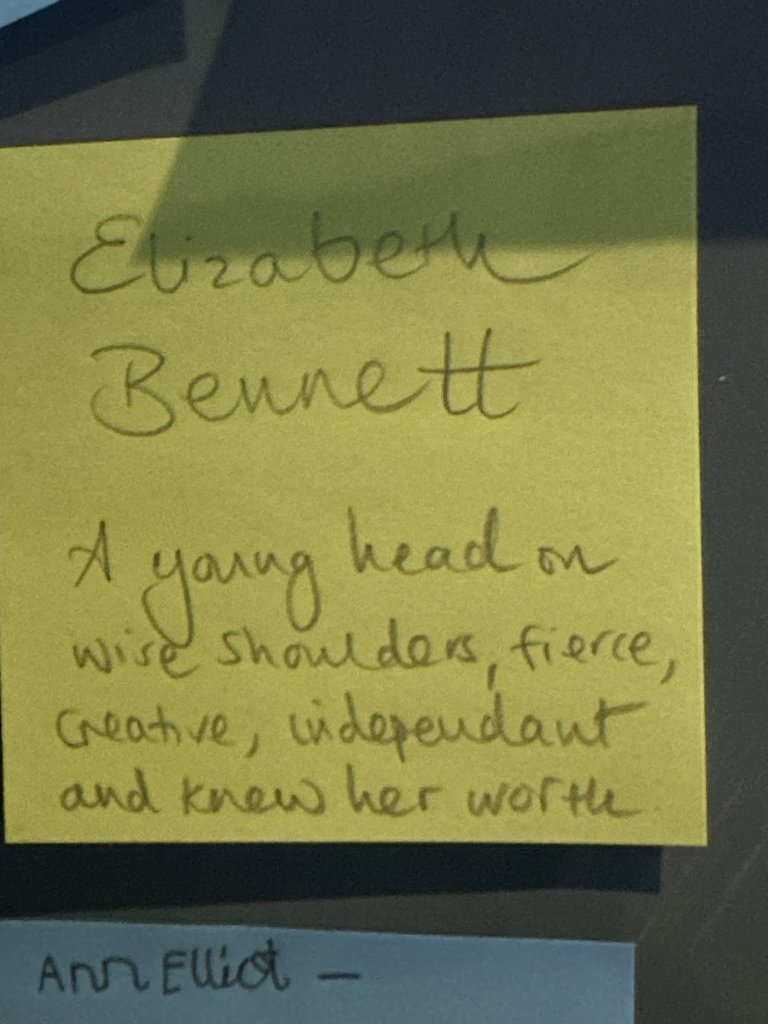 Elizabeth
Bennett
A young head on
wise shoulders, fierce,
creative, independant
and knew her worth
Ann Elliot —